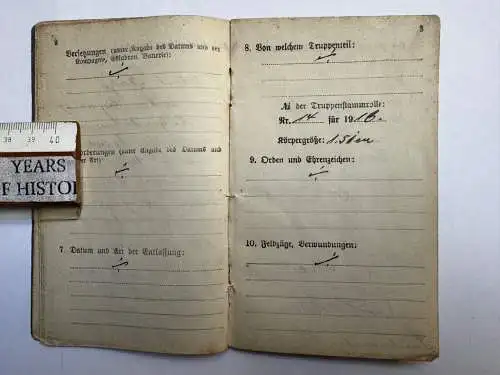 38 39 40
YEARS
OF HISTO
2
Versetzungen (unter Angabe des Datums und der
Kompagnie, Eskadron, Batterie):
orderungen (unter Angabe des Datums und
er Art):
7. Datum und Art der Entlassung:
3
8. Von welchem Truppenteil:
№ der Truppenstammrolle:
Nr. 14 für 1916.
Körpergröße:
9. Orden und Ehrenzeichen:
10. Feldzüge, Verwundungen: